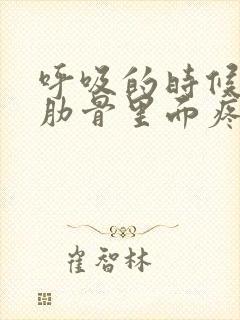 呼吸的时候
肋骨里面疼
崔智林